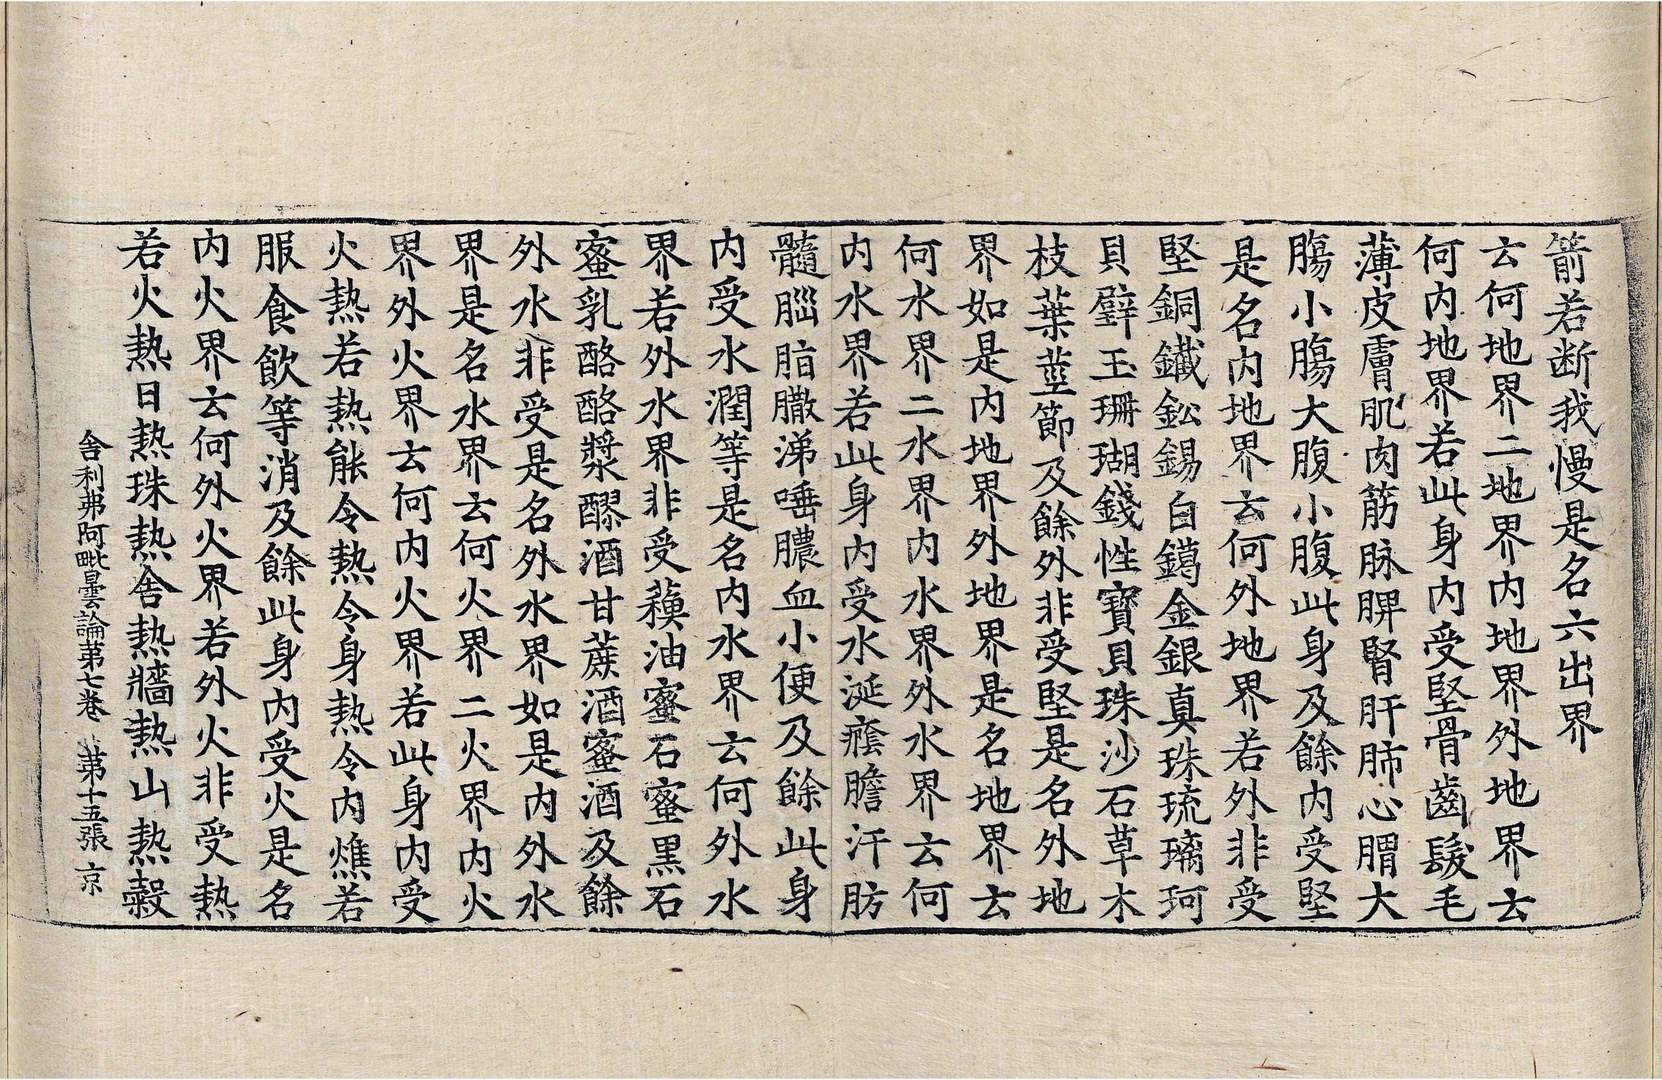 箭若断我慢是名六出界
云何地界二地界内地界外地界云
何内地界若此身内受堅骨齒髮毛
薄皮膚肌肉筋脉脾腎肝肺心膶大
膓小膓大腹小腹此身及餘内受堅
是名内地界云何外地界若外非受
堅銅鐵鈆錫白鑞金銀真珠琉璃珂
貝璧玉珊瑚錢性寶貝珠沙石草木
枝葉莖節及餘外非受堅是名外地
界如是内地界外地界是名地界云
何水界二水界内水界外水界云何
内水界若此身内受水涎癊膽汗肪
髓腦脂𦠄涕唾膿血小便及餘此身
内受水潤等是名内水界云何外水
界若外水界非受䕸油蜜石蜜黒石
蜜乳酪酪漿醪酒甘蔗酒蜜酒及餘
外水非受是名外水界如是内外水
界是名水界云何火界二火界内火
界外火界云何内火界若此身内受
火熱若熱能令熱令身熱令内燋若
服食飲等消及餘此身内受火是名
内火界云何外火界若外火非受熱
若火熱日熱珠熱舍熱牆熱山熱穀
舍利弗阿毗曇論第七卷 第十五張 京